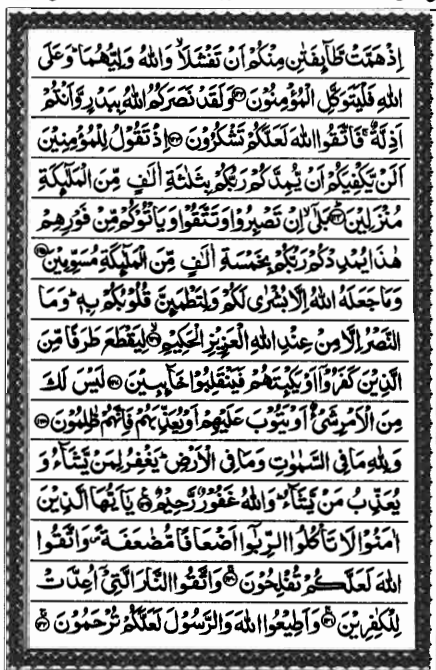 اِذْ هَمَّتْ طَّآىِٕفَتٰنِ مِنْكُمْ اَنْ تَفْشَلَا ۙ وَاللّٰهُ وَلِیُّهُمَا ؕ وَعَلَی
اللّٰهِ فَلْیَتَوَكَّلِ الْمُؤْمِنُوْنَ ﴿۱۲۲﴾ وَلَقَدْ نَصَرَكُمُ اللّٰهُ بِبَدْرٍ وَّاَنْتُمْ
اَذِلَّةٌ ۚ فَاتَّقُوا اللّٰهَ لَعَلَّكُمْ تَشْكُرُوْنَ ﴿۱۲۳﴾ اِذْ تَقُوْلُ لِلْمُؤْمِنِیْنَ
اَلَنْ یَّكْفِیَكُمْ اَنْ یُّمِدَّكُمْ رَبُّكُمْ بِثَلٰثَةِ اٰلٰفٍ مِّنَ الْمَلٰٓىِٕكَةِ
مُنْزَلِیْنَ ﴿۱۲۴﴾ بَلٰۤی ۙ اِنْ تَصْبِرُوْا وَتَتَّقُوْا وَیَاْتُوْكُمْ مِّنْ فَوْرِهِمْ
هٰذَا یُمْدِدْكُمْ رَبُّكُمْ بِخَمْسَةِ اٰلٰفٍ مِّنَ الْمَلٰٓىِٕكَةِ مُسَوِّمِیْنَ ﴿۱۲۵﴾
وَمَا جَعَلَهُ اللّٰهُ اِلَّا بُشْرٰی لَكُمْ وَلِتَطْمَىِٕنَّ قُلُوْبُكُمْ بِهٖ ؕ وَمَا
النَّصْرُ اِلَّا مِنْ عِنْدِ اللّٰهِ الْعَزِیْزِ الْحَكِیْمِ ﴿۱۲۶﴾ لِیَقْطَعَ طَرَفًا مِّنَ
الَّذِیْنَ كَفَرُوْۤا اَوْ یَكْبِتَهُمْ فَیَنْقَلِبُوْا خَآىِٕبِیْنَ ﴿۱۲۷﴾ لَیْسَ لَكَ
مِنَ الْاَمْرِ شَیْءٌ اَوْ یَتُوْبَ عَلَیْهِمْ اَوْ یُعَذِّبَهُمْ فَاِنَّهُمْ ظٰلِمُوْنَ ﴿۱۲۸﴾
وَلِلّٰهِ مَا فِی السَّمٰوٰتِ وَمَا فِی الْاَرْضِ ؕ یَغْفِرُ لِمَنْ یَّشَآءُ وَ
یُعَذِّبُ مَنْ یَّشَآءُ ؕ وَاللّٰهُ غَفُوْرٌ رَّحِیْمٌ ﴿۱۲۹﴾ یٰۤاَیُّهَا الَّذِیْنَ
اٰمَنُوْا لَا تَاْكُلُوا الرِّبٰۤوا اَضْعَافًا مُّضٰعَفَةً ۪ وَّاتَّقُوا
اللّٰهَ لَعَلَّكُمْ تُفْلِحُوْنَ ﴿۱۳۰﴾ وَاتَّقُوا النَّارَ الَّتِیْۤ اُعِدَّتْ
لِلْكٰفِرِیْنَ ﴿۱۳۱﴾ وَاَطِیْعُوا اللّٰهَ وَالرَّسُوْلَ لَعَلَّكُمْ تُرْحَمُوْنَ ﴿۱۳۲﴾